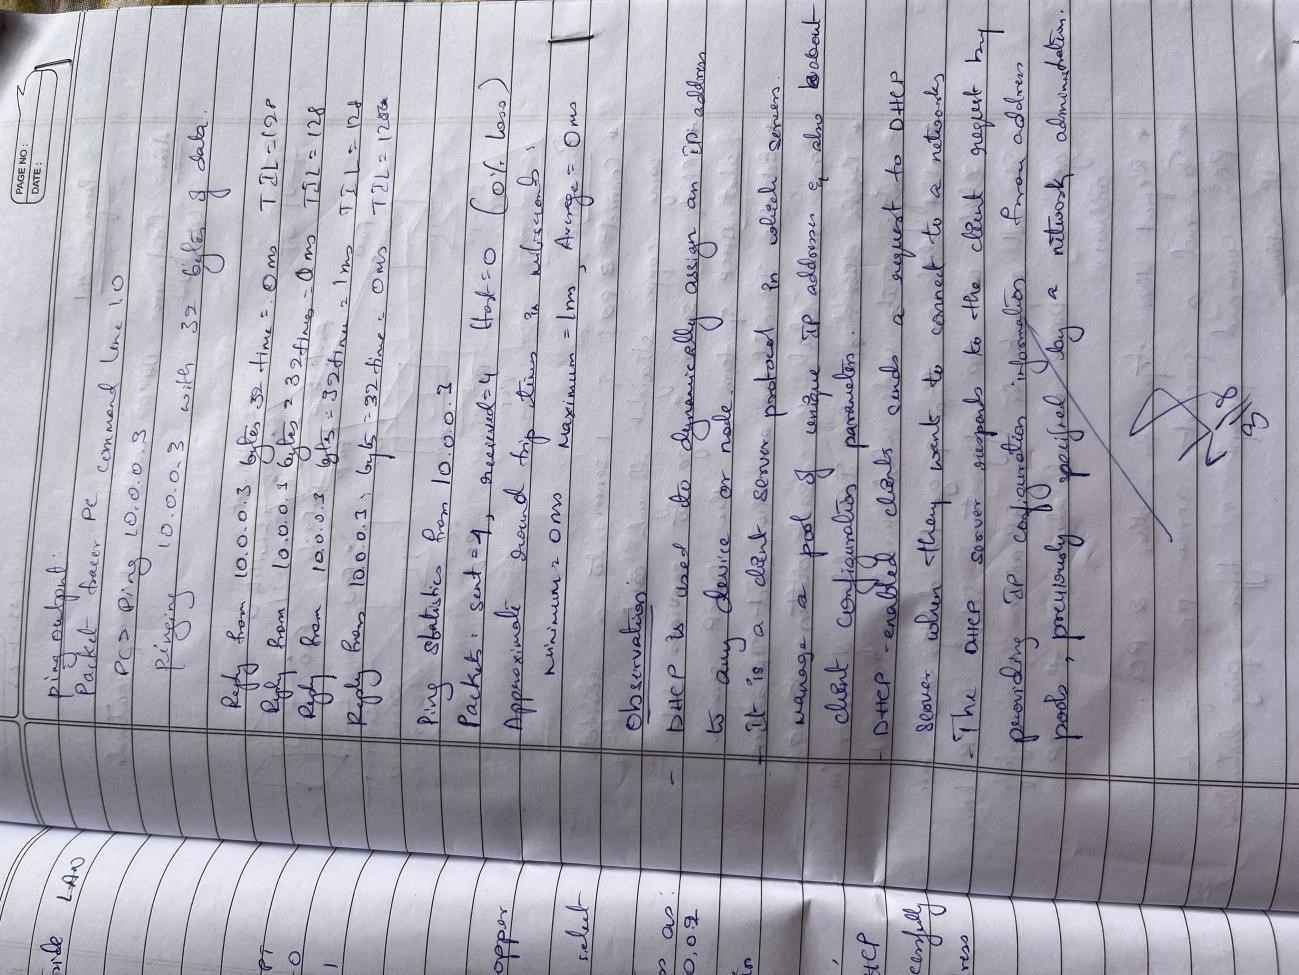 PAGE NO:
DATE:
Ping output:
Packet tracer PC command line 1.0
PC> Ping 10.0.0.3
Pinging 10.0.0.3 with 32 bytes of data.
Reply from 10.0.0.3 bytes 32 time = 0ms TTL = 128
Reply from 10.0.0.3 bytes = 32 time = 0ms TTL = 128
Reply from 10.0.0.3 bytes = 32 time = 1ms TTL = 128
Reply from 10.0.0.3, bytes = 32 time = 0ms TTL = 128
Ping statistics from 10.0.0.3
Packets: sent = 4, received = 4 lost = 0 (0% loss)
Approximate round trip times in
minimum = 0ms Maximum = 1ms, Average = 0ms
Observation:
- DHCP is used to dynamically assign an IP address
to any device or node.
- It is a client server protocol in which servers
manage a pool of unique IP addresses & also about
client configuration parameters.
- DHCP-enabled clients sends a request to DHCP
server when they wants to connect to a network
- The DHCP server responds to the client request by
providing IP configuration information from address
pools, previously specified by a network administration.
side LAN
PT
0
1
opper
select
as:
0.0.2
in
DHCP
cessfully
ress